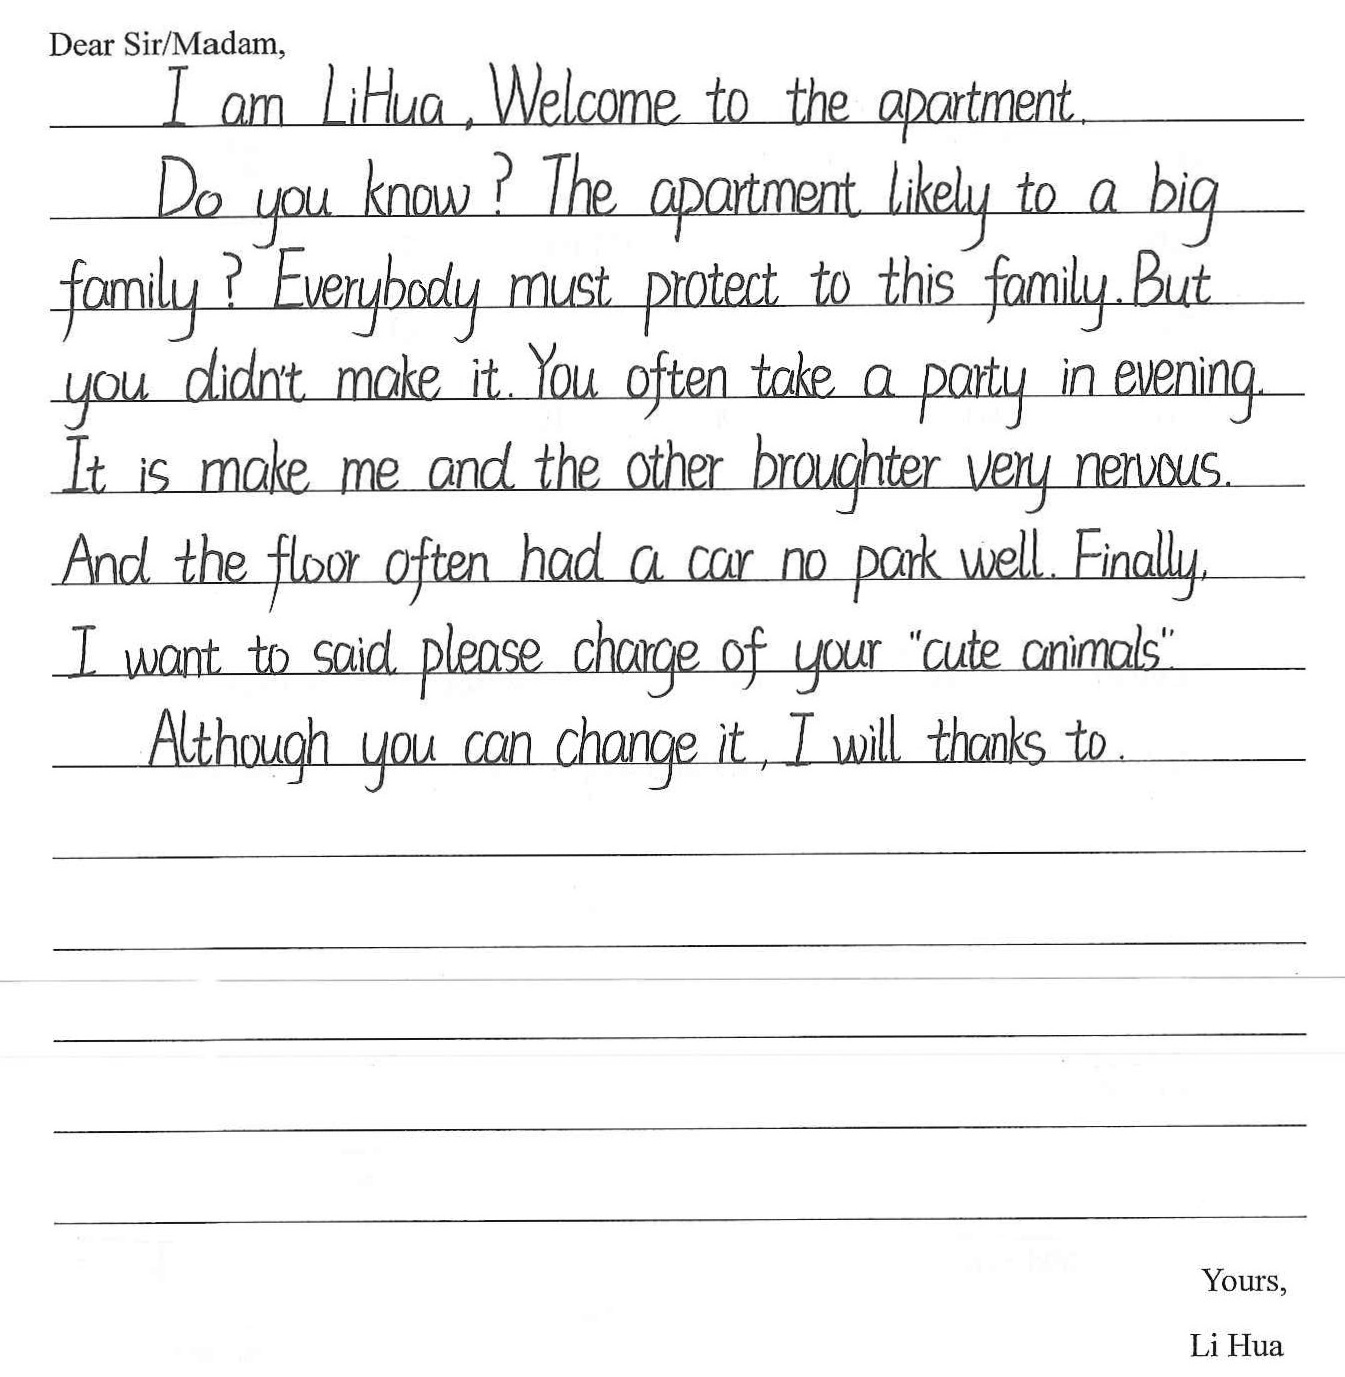 Dear Sir/Madam,
I am LiHua, Welcome to the apartment.
Do you know? The apartment likely to a big
family? Everybody must protect to this family. But
you didn't make it. You often take a party in evening.
It is make me and the other broughter very nervous.
And the floor often had a car no park well. Finally,
I want to said please charge of your "cute animals".
Although you can change it, I will thanks to.
Yours,
Li Hua